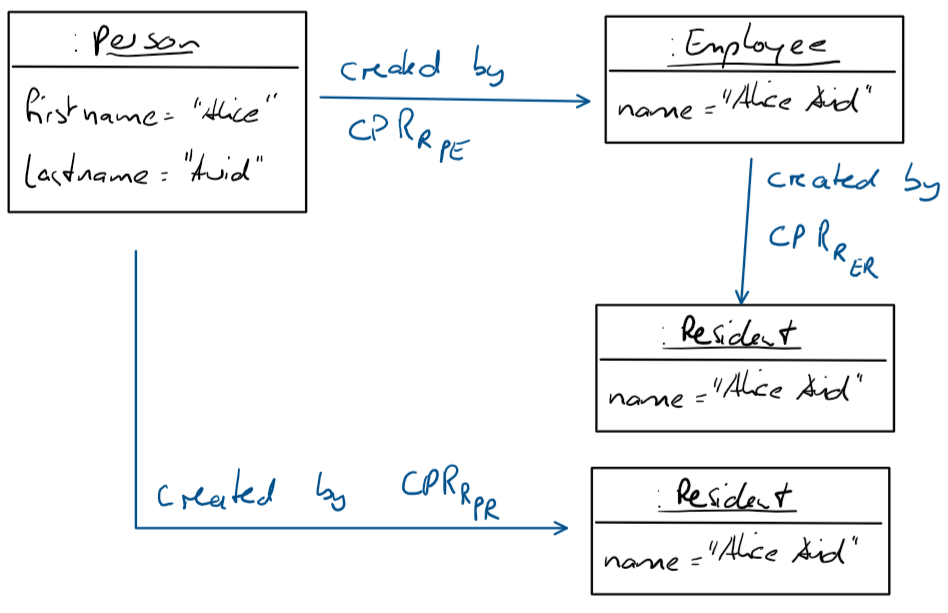 : Person
firstname = "Alice"
lastname = "Avid"
created by
CPR_R_PE
: Employee
name = "Alice Avid"
created by
CPR_R_ER
: Resident
name = "Alice Avid"
created by CPR_R_PR
: Resident
name = "Alice Avid"